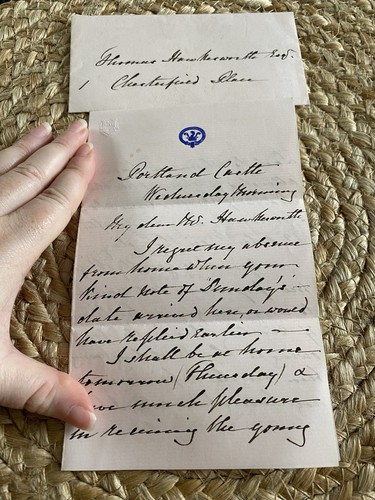 Thomas Hawkesworth Esq.
1 Chesterfield Place
Portland Castle
Wednesday Morning
My dear Mr. Hawkesworth
I regret my absence
from home when your
kind note of Sunday's
date arrived here, or would
have replied earlier —
I shall be at home
tomorrow (Thursday) &
have much pleasure
in receiving the young